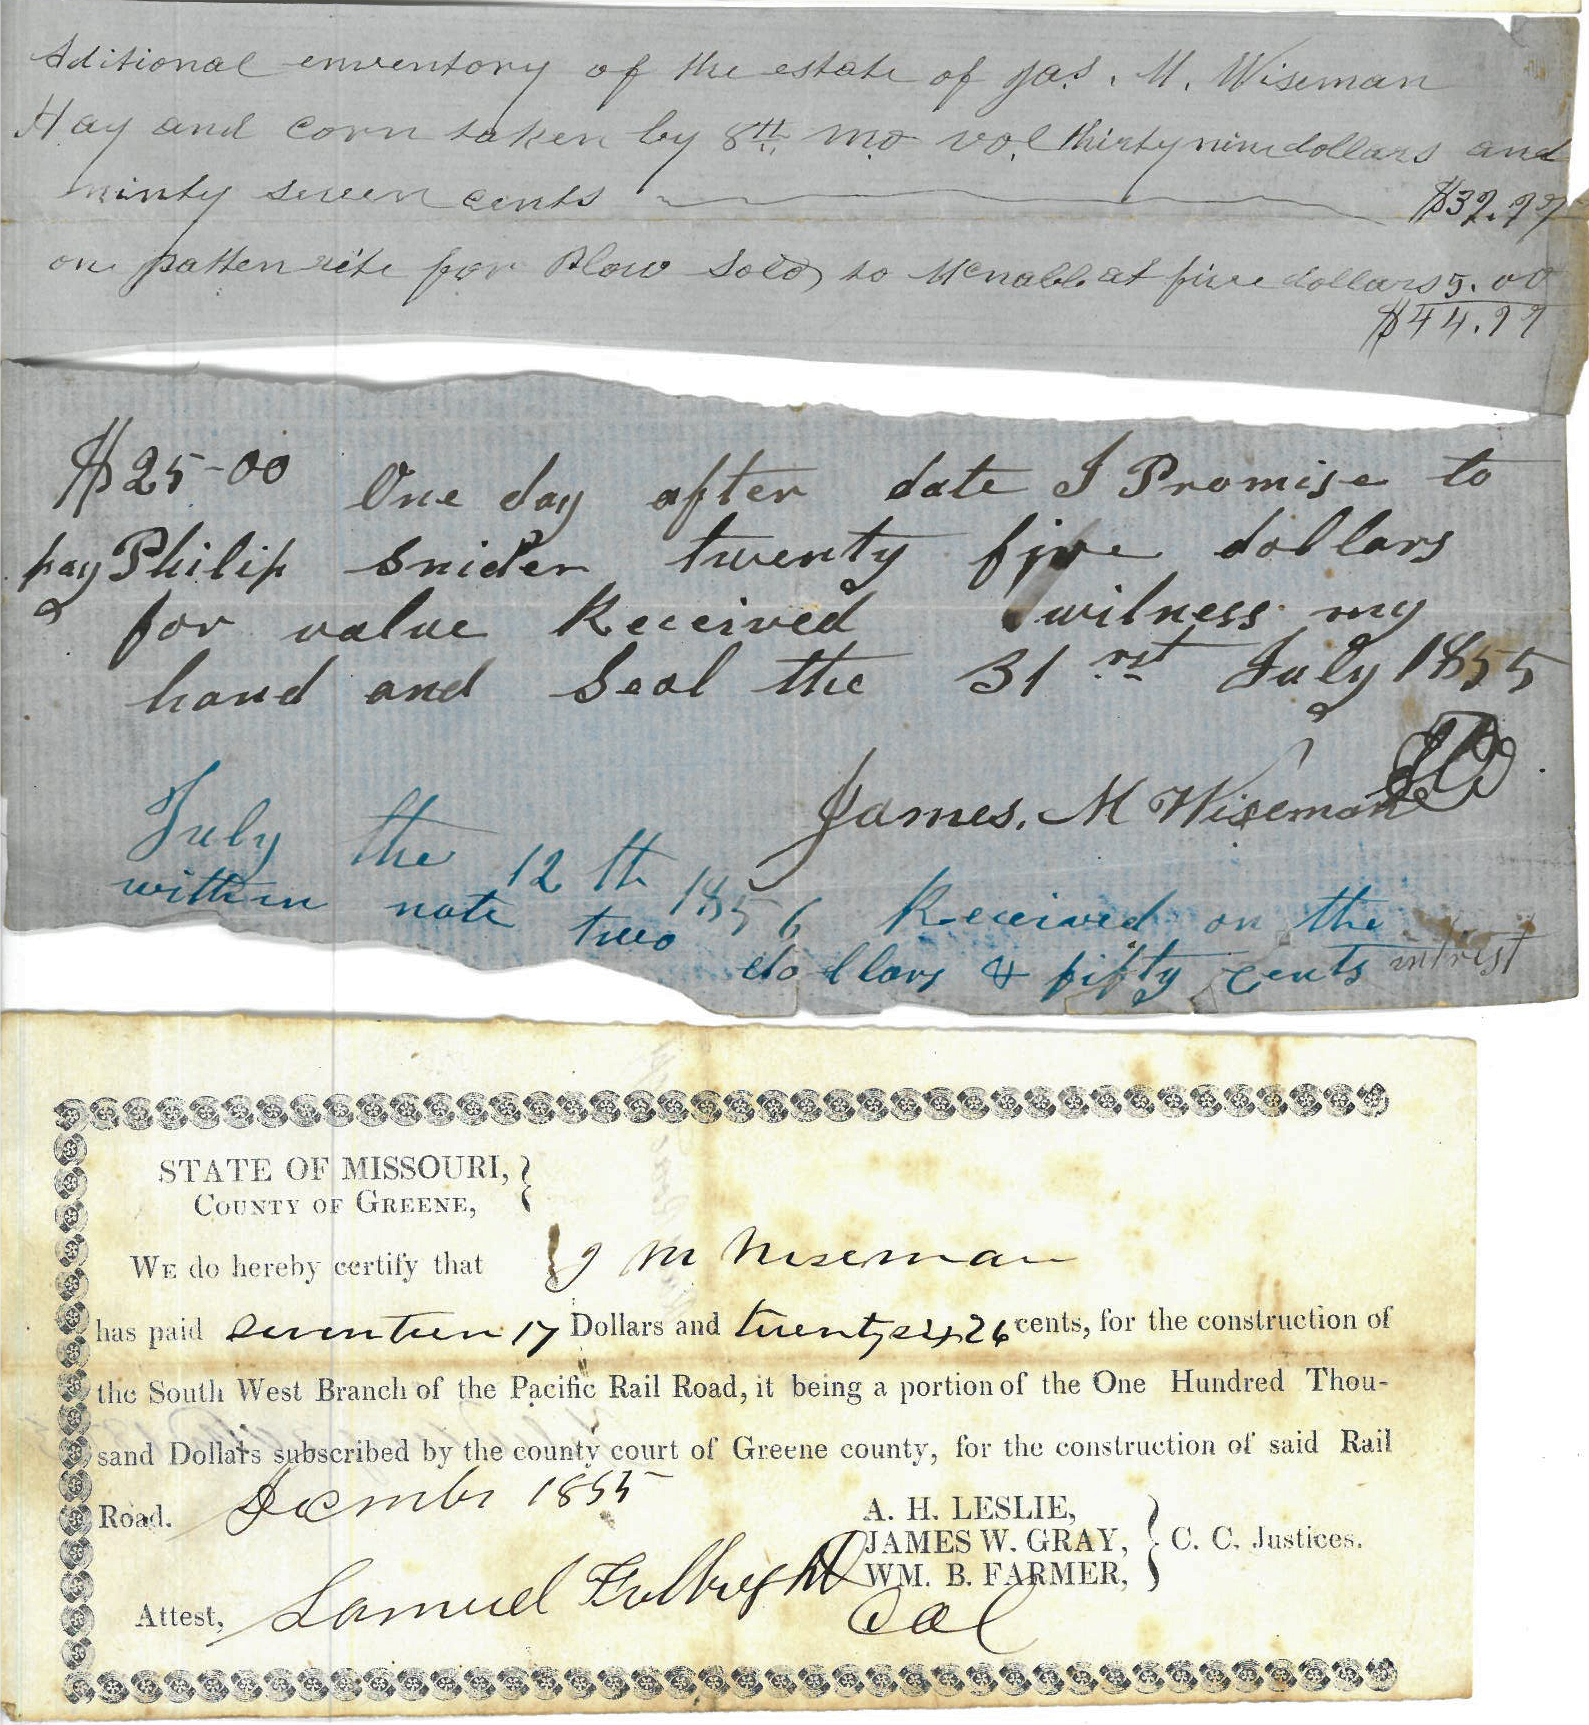 Aditional enventory of the estate of Jas. M. Wiseman
Hay and corn taken by 8th mo vol thirty nine dollars and
ninty seven cents $39.97
on patten rite for Plow Sold to Mcnabb at five dollars 5.00
$44.97
$25-00 One day after date I Promise to
pay Philip Snider twenty five dollars
for value Received witness my
hand and Seal the 31rst July 1855
James. M Wiseman
July the 12th 1856 Received on the
within note two dollars & fifty cents intrest
STATE OF MISSOURI,
COUNTY OF GREENE,
WE do hereby certify that J M Wiseman
has paid Seventeen 17 Dollars and twenty 26 cents, for the construction of
the South West Branch of the Pacific Rail Road, it being a portion of the One Hundred Thou-
sand Dollars subscribed by the county court of Greene county, for the construction of said Rail
Road. Decmbr 1855
A. H. LESLIE,
JAMES W. GRAY,
WM. B. FARMER,
C. C. Justices.
Attest, Samuel Fulbright
Col